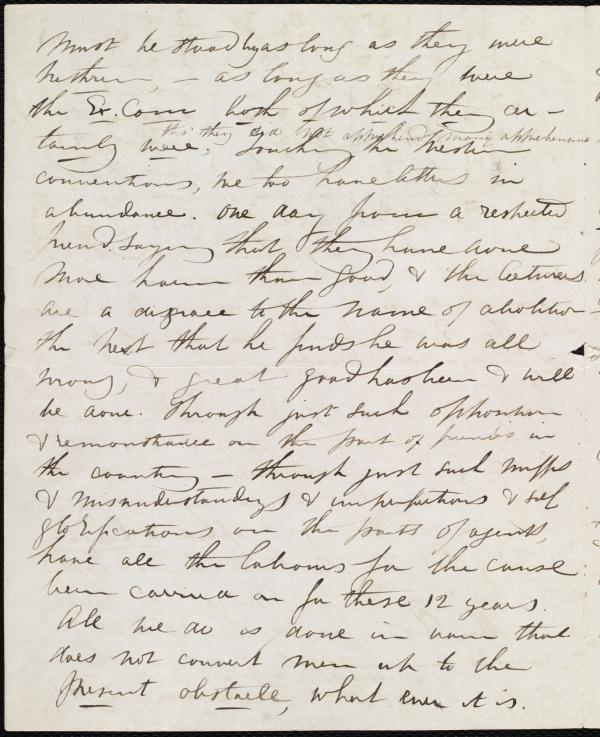 must be stood by as long as they were
brethren, – as long as they were
the Ex. Com both of which they cer-
tho' they did not apprehend many apprehensions
tainly were, Touching the Western
conventions, we too have letters in
abundance. One day from a respected
friend saying that they have done
more harm than good, & the lecturers
are a disgrace to the name of abolition
the next that he finds he was all
wrong, & great good has been & will
be done. Through just such opposition
& remonstrance on the part of friends in
the country – through just such miffs
& misunderstandings & imperfections & self
glorifications on the parts of agents,
have all the labours for the cause
been carried on for these 12 years.
All we do is done in vain that
does not convert men up to the
present obstacle, what ever it is.